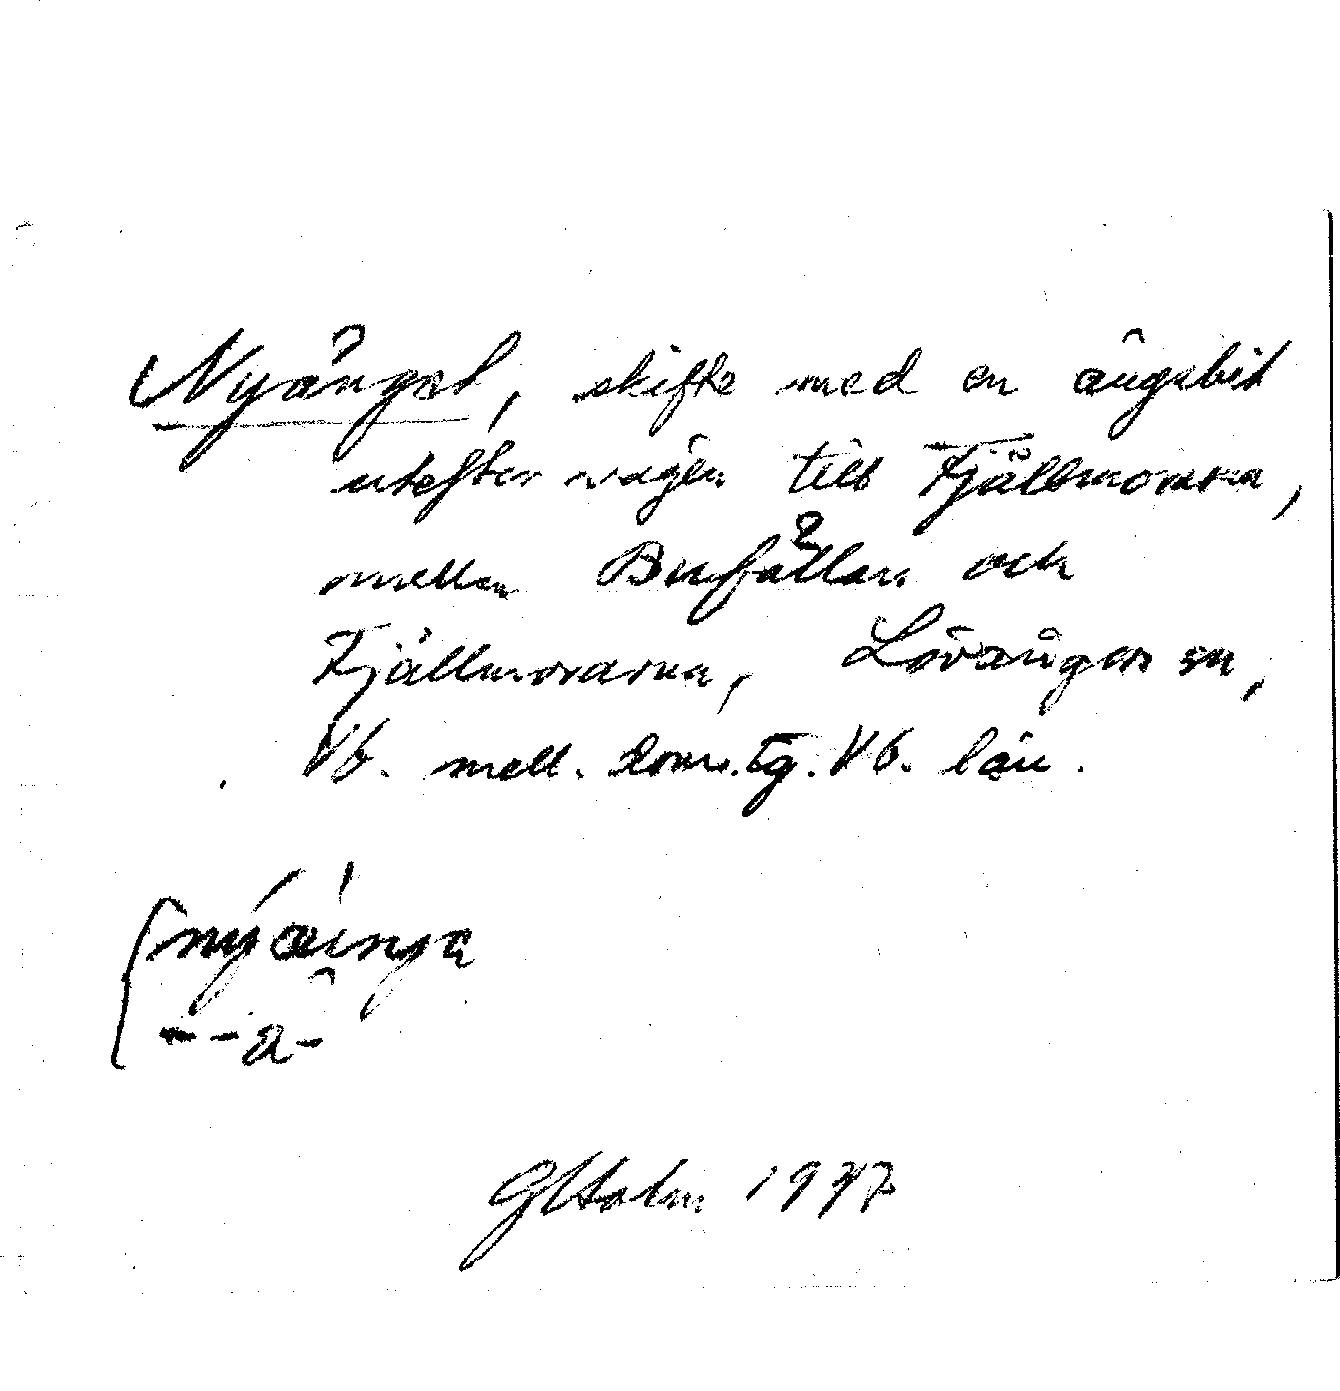 Nyänget, skifte med en ängsbit
utefter vägen till Fjällmorarna,
mellan Bufållan och
Fjällmorarna, Lövångers sn,
Vb. mell. doms.tg. Vb. län.
nýæinga
--a-
GHolm 1937